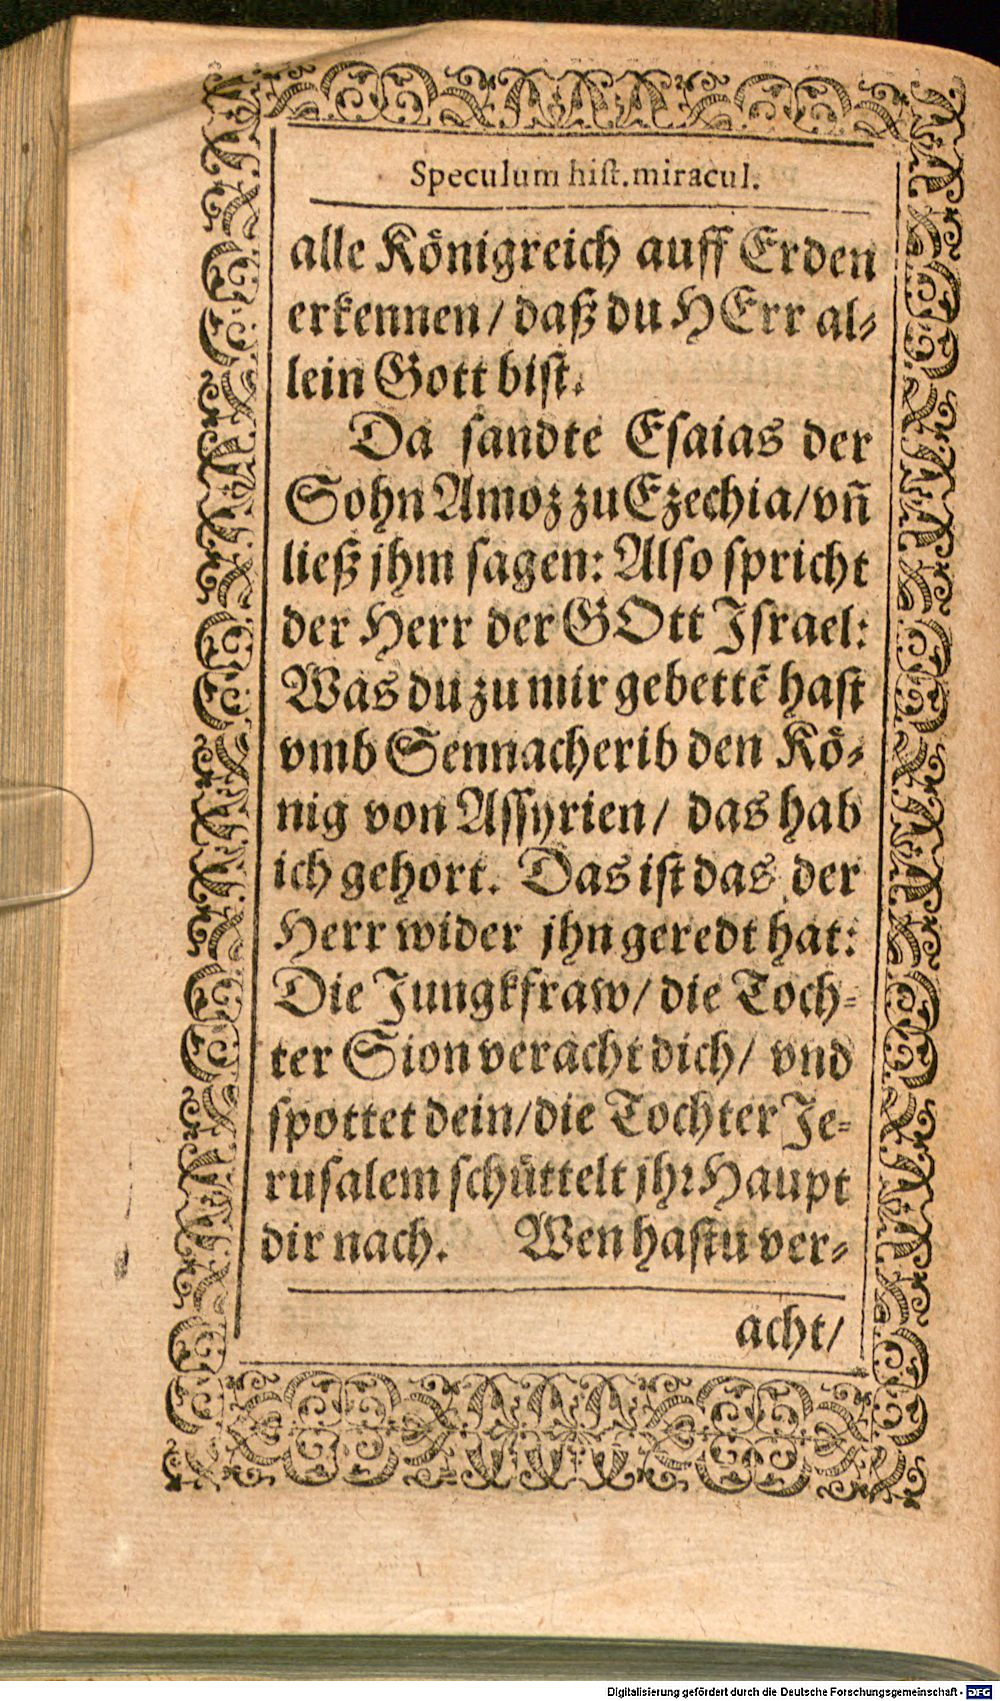 Speculum hiſt. miracul.
alle Königreich auff Erden
erkennen / daß du HErr al⸗
lein Gott biſt.
Da ſandte Eſaias der
Sohn Amoz zu Ezechia / vn̄
ließ jhm ſagen: Alſo ſpricht
der Herr der GOtt Iſrael:
Was du zu mir gebettē haſt
vmb Sennacherib den Kö⸗
nig von Aſſyrien / das hab
ich gehort. Das iſt das der
Herr wider jhn geredt hat:
Die Jungkfraw / die Toch⸗
ter Sion veracht dich / vnd
ſpottet dein / die Tochter Je⸗
ruſalem ſchüttelt jhr Haupt
dir nach. Wen haſtu ver⸗
acht /
Digitalisierung gefördert durch die Deutsche Forschungsgemeinschaft - DFG